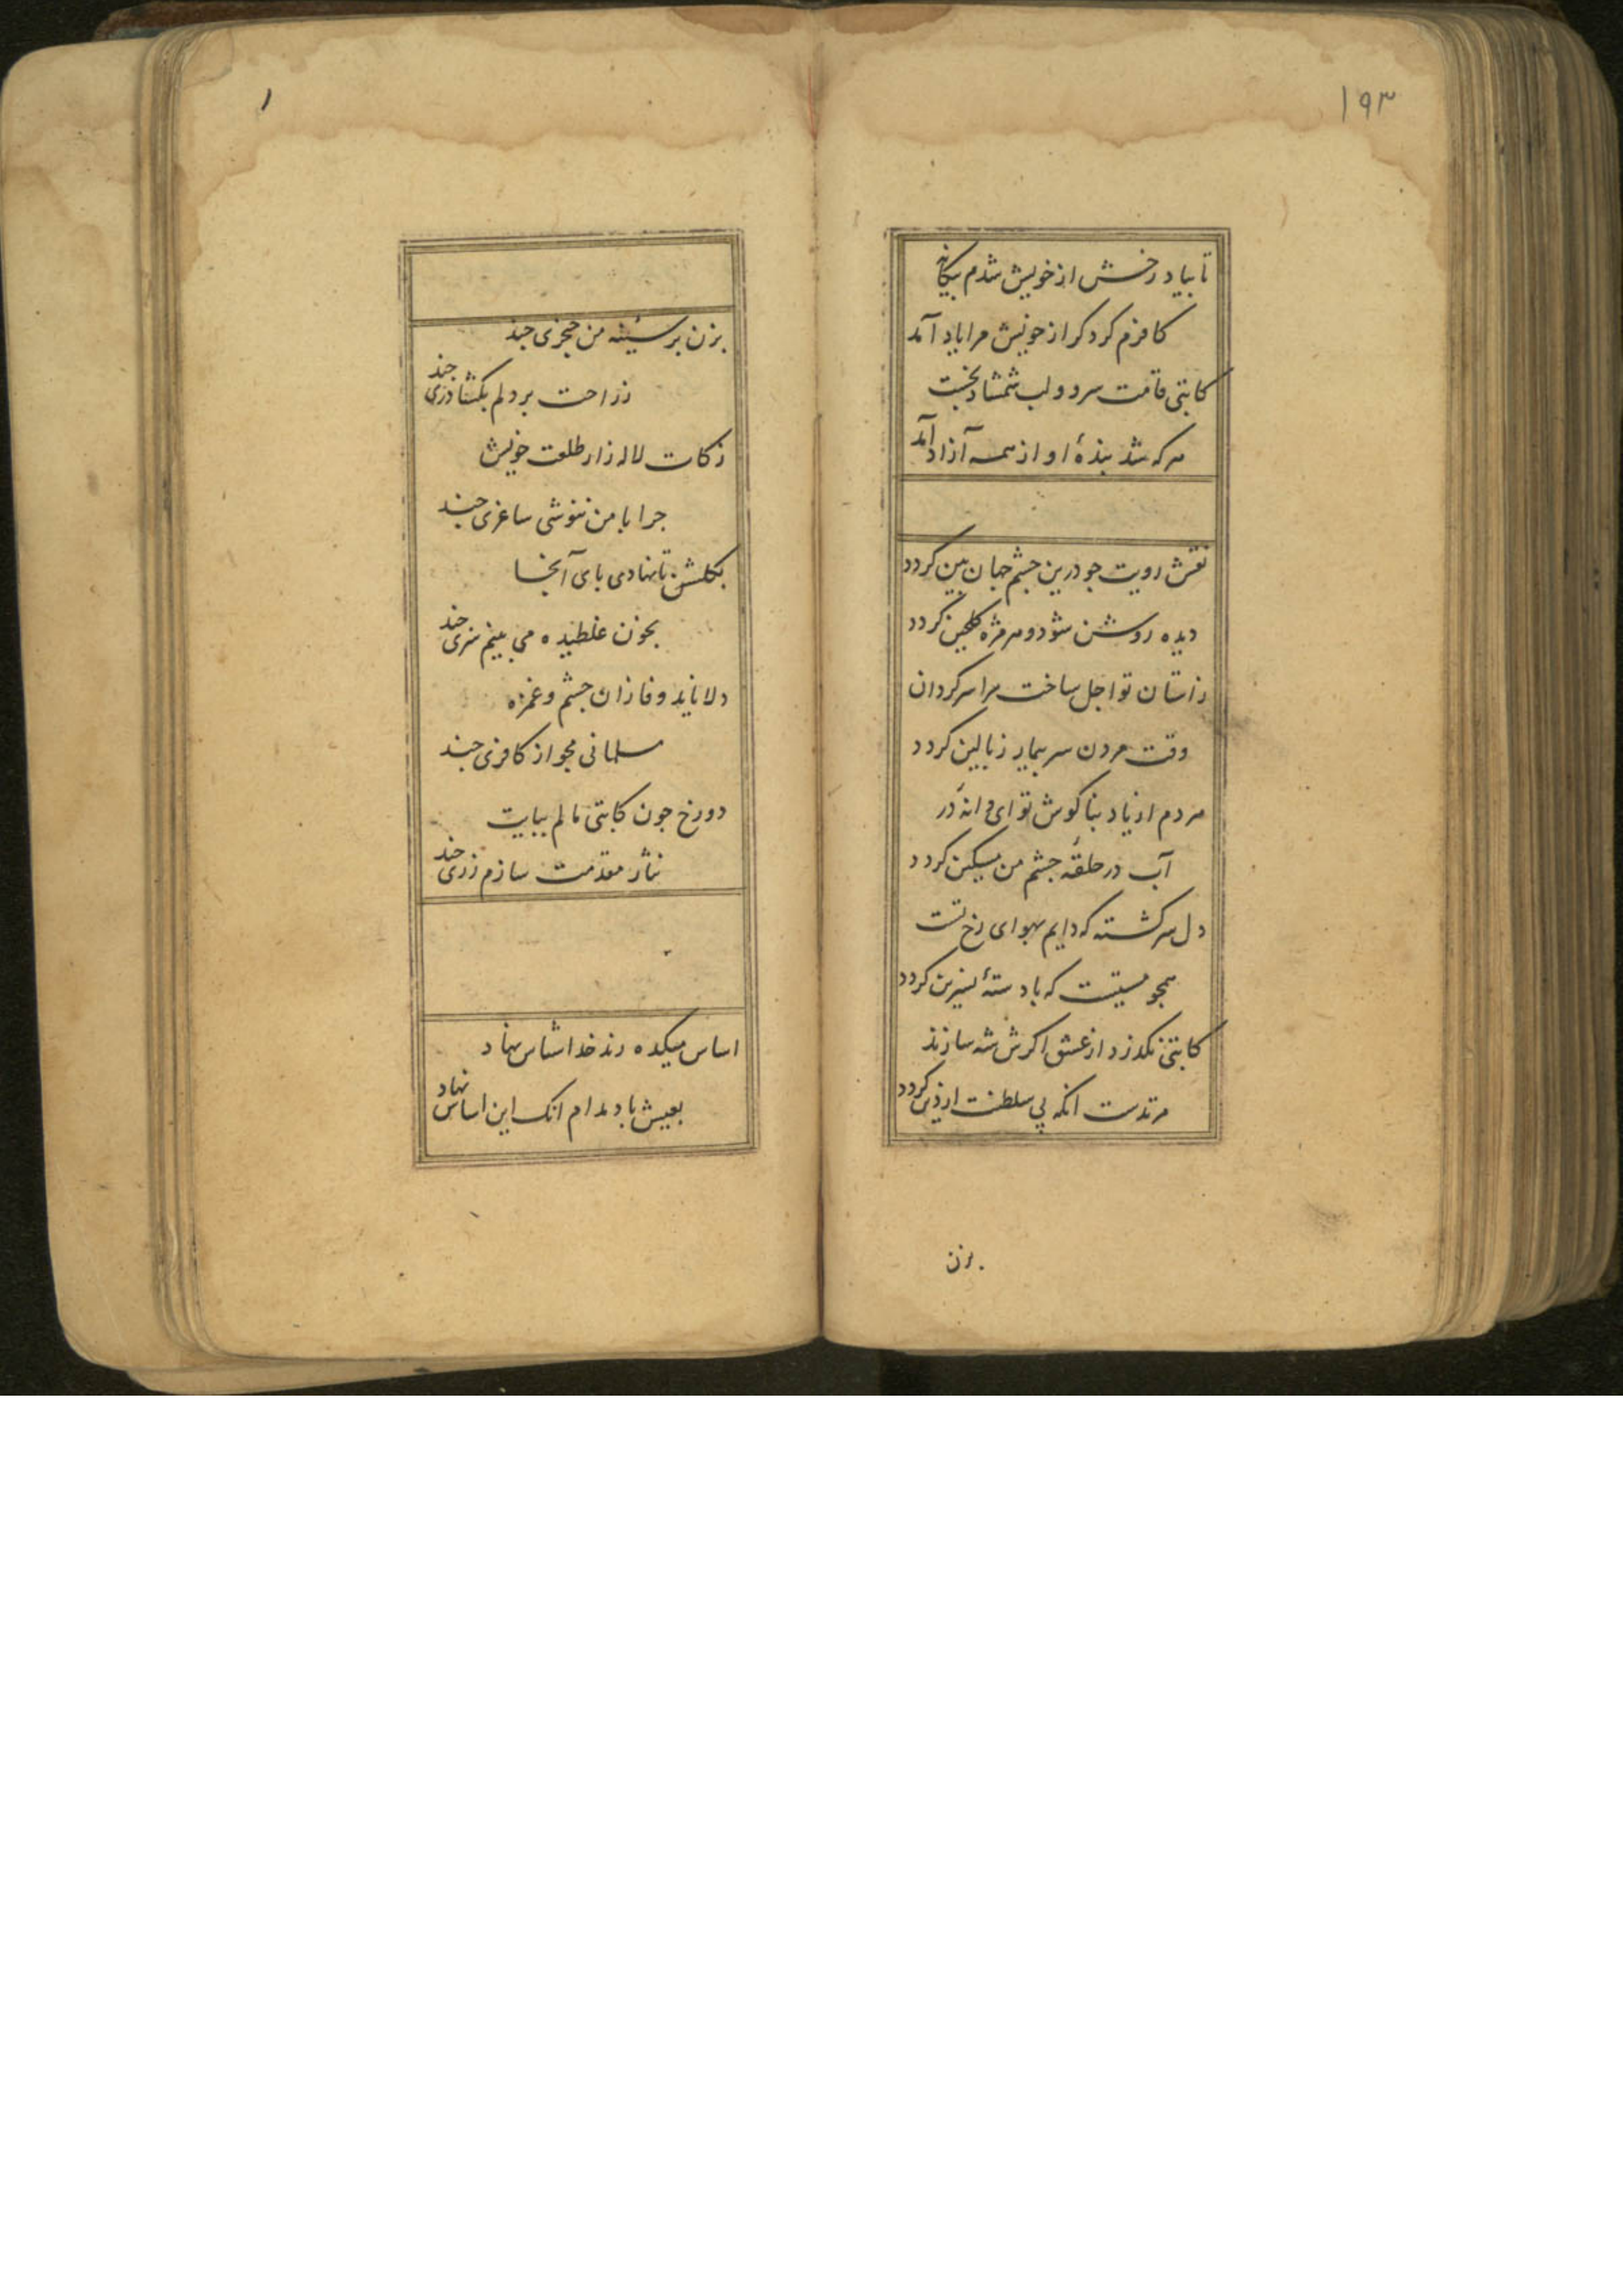 ۱۹۳
تا بیاد رخش از خویش شدم بیکانه
کافرم کرد کر از خویش مرا یاد آمد
کاتبی قامت سرو و لب شمشاد بخست
هرکه شد بندهٔ او از همه آزاد آمد
نقش رویت جو درین جشم جهان بین کردد
دیده روشن شود و هر مژه کلجین کردد
زاستان تو اجل ساخت مرا سرکردان
وقت مردن سر بیمار ز بالین کردد
مردم از یاد بناکوش تو ای دانه در
آب در حلقهٔ جشم من مسکین کردد
دل سرکشته که دایم بهوای رخ تست
همجو مستیست که با دستهٔ نسرین کردد
کاتبی نکذرد از عشق اکرش شه سازند
مرتدست انکه پی سلطنت از دین کردد
بزن
۱
بزن بر سینهٔ من خنجری جند
ز راحت بر دلم بکشا دری جند
زکات لاله زار طلعت خویش
جرا با من ننوشی ساغری جند
بکلشن تا نهادی بای آنجا
بخون غلطیده می بینم سری جند
دلا ناید وفا زان جشم و غمزه
مسلمانی مجو از کافری جند
دو رخ جون کاتبی مالم ببایت
نثار مقدمت سازم زری جند
اساس میکده رند خداشناس نهاد
بعیش باد مدام انک این اساس نهاد